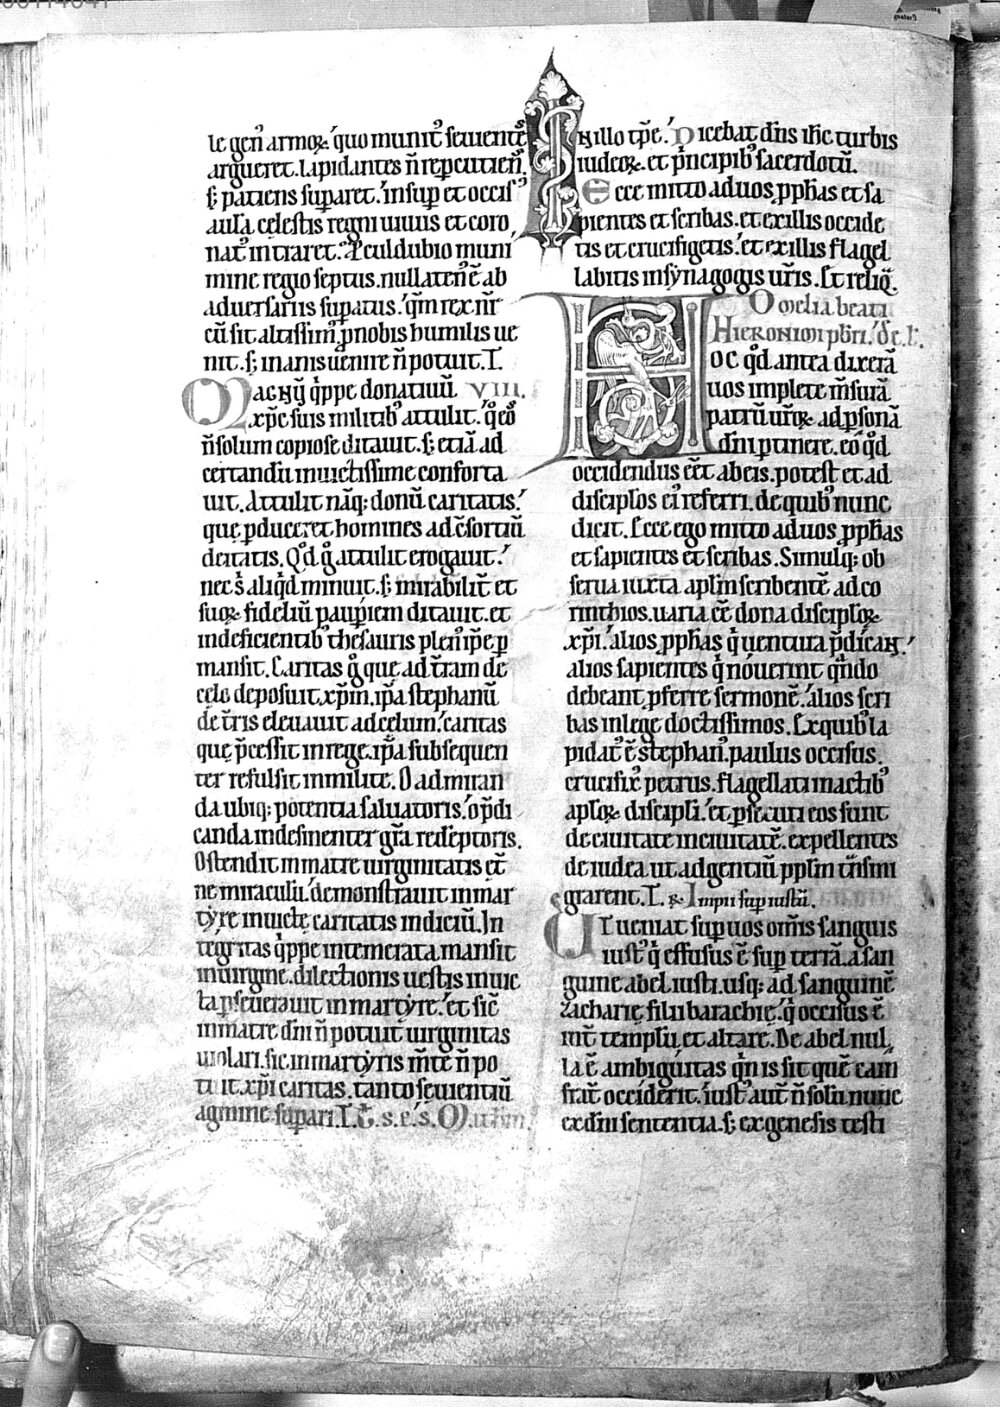 le gen᷒ armoꝝ. quo munit᷒ seuientē
argueret. lapidantes n̄ repcutien᷒.
s; patiens supararet. insup et occis᷒
aula celestis regni uiuus et coro
nat᷒ intraret. Peculdubio muni
mine regio septus. nullaten᷒ ē ab
aduersariis supatus. qm̄ rex nr̄
cū sit altissim᷒ pnobis humilis ue
nit. s; inanis uenire n̄ potuit. L.
Magnū q̈ppe donatiuū VIII.
xp̄c suis militib᷒ attulit. q̊ eos
n̄ solum copiose ditauit. s; etiā ad
certandū inuictissime conforta
uit. Attulit nāq; donū caritatis.
que pduceret homines ad c̄sortiū
deitatis. Qd̊ g̊ attulit erogauit.
nec s̄ aliqd minuit. s; mirabilit̄ et
suoꝝ fideliū paupiem ditauit. et
indeficientib᷒ thesauris plen᷒ ip̄e p
mansit. Caritas g̊ que ad t̄ram de
celo deposuit xp̄m. ip̄a stephanū
de t̄ris eleuauit ad celum. caritas
que p̄cessit in rege. ip̄a subsequen
ter refulsit in milite. O admiran
da ubiq; potentia saluatoris. o p̄di
canda indesinenter gr̄a redēptoris.
Ostendit in matre uirginitatis et̄
ne miraculū. demonstrauit in mar
tyre inuicte caritatis indiciū. In
tegritas q̈ppe intemerata mansit
in uirgine. dilectionis uestis inuic
ta pseuerauit in martyre. et sic̄
in matre dn̄i n̄ potuit uirginitas
uiolari. sic in martyris mēte n̄ po
tuit xp̄i caritas. tanto seuientiū
agmine supari. L. C̄. s. e. s.
In illo tp̄e. Dicebat dn̄s ihc turbis
iudeoꝝ. et p̄ncipib᷒ sacerdotū.
Ecce mitto ad uos pphas et sa
pientes et scribas. et ex illis occide
tis et crucifigetis. et ex illis flagel
labitis in synagogis ur̄is. Et reliq̄.
Omelia beati
Hieronimi pbri. de l.
Hoc qd antea dixerā
uos implete m̄surā
patrū ur̄oꝝ ad psonā
dn̄i ptinere. eo qd
occidendus eēt ab eis. potest et ad
disciplos ei᷒ referri. de quib᷒ nunc
dicit. Ecce ego mitto ad uos pphas
et sapientes et scribas. Simulq; ob
serua iuxta aplm scribentē ad co
rinthios. uaria eē dona disciploꝝ
xp̄i. alios pphas q̇ uentura p̄dicāt.
alios sapientes q̇ nouerint qn̄do
debeant pferre sermonē. alios scri
bas in lege doctissimos. Ex quib᷒ la
pidat᷒ ē stephan᷒. paulus occisus.
crucifix᷒ petrus. flagellati in actib᷒
aploꝝ discipli. et psecuti eos sunt
de ciuitate in ciuitatē. expellentes
de iudea. ut ad gentiū pplm t̄nsmi
grarent. L. ꝶ Impii sup iustū.
Ut ueniat sup uos om̄is sanguis
iust᷒ q̇ effusus ē sup terrā. a san
guine abel iusti. usq; ad sanguinē
zacharie filii barachie. q̇ occisus ē
int̄ templū et altare. De abel nul
la ē ambiguitas q̇n is sit quē cain
frat̄ occiderit. iust᷒ aut̄ n̄ solū nunc
ex dn̄i sententia. s; ex genesis testi